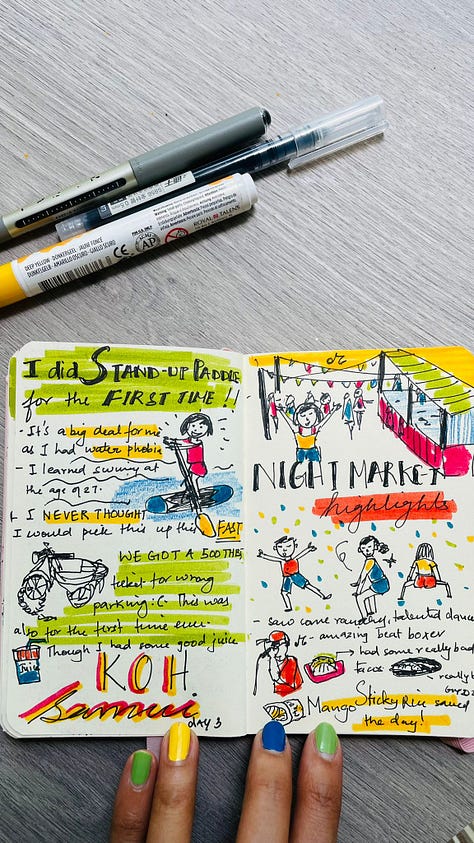 DEEP YELLOW · DONKERGEEL · JAUNE FONCÉ
DUNKELGELB · AMARILLO OSCURO · GIALLO SCURO
CE
AP
ROYAL TALENS
I did STAND-UP PADDLE
for the FIRST TIME !!
- It's a big deal for me
as I had water phobia
- I learned swimming at
the age of 27.
I NEVER THOUGHT
I would pick this up this FAST
WE GOT A 500 THB
ticket for wrong
parking :(- This was
also for the first time ever
Though I had some good juice
KOH
Samui
DAY 3
NIGHT MARKET
highlights
- saw some talented
- amazing beat boxer
→ had some really bad
tacos
really
Mango Sticky Rice saved
the day!